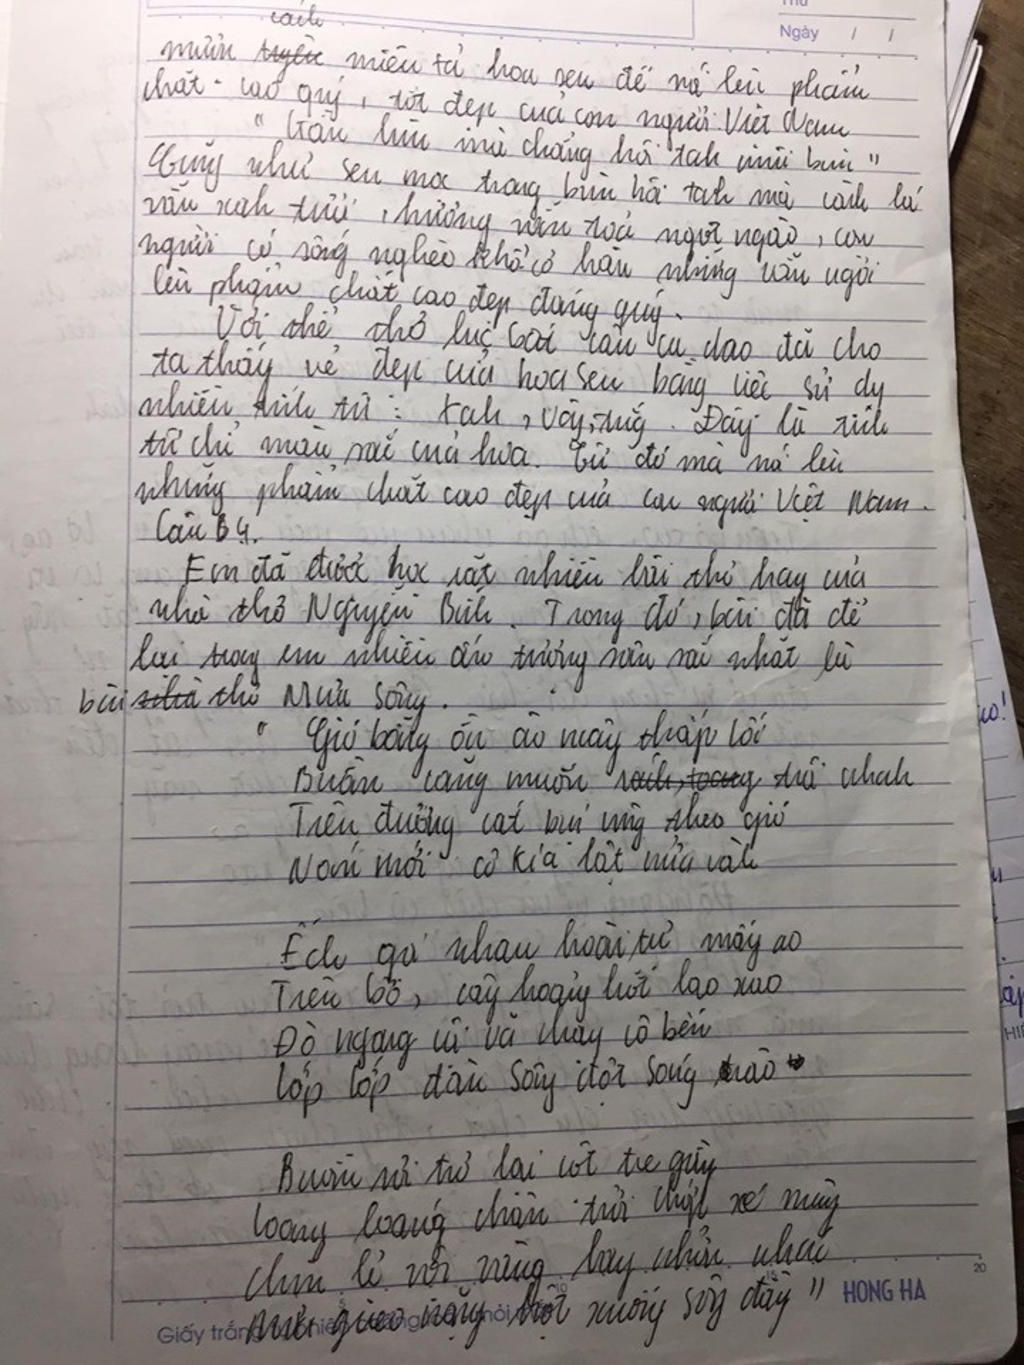 Thứ
Ngày / /
cách
mượn truyền miêu tả hoa sen để nói lên phẩm
chất cao quý, tốt đẹp của con người Việt Nam
"Gần bùn mà chẳng hôi tanh mùi bùn"
Cũng như sen mọc trong bùn hôi tanh mà cành lá
vẫn xanh tươi, hương vẫn toả ngọt ngào, con
người có sống nghèo khổ cơ hàn nhưng vẫn ngời
lên phẩm chất cao đẹp đáng quý.
Với thể thơ lục bát câu ca dao đã cho
ta thấy vẻ đẹp của hoa sen bằng việc sử dụng
nhiều tính từ: xanh, vàng, trắng. Đây là tính
từ chỉ màu sắc của hoa. Từ đó mà nói lên
những phẩm chất cao đẹp của con người Việt Nam.
Câu 4.
Em đã được học rất nhiều bài thơ hay của
nhà thơ Nguyễn Bính. Trong đó, bài đã để
lại trong em nhiều ấn tượng sâu sắc nhất là
bài thơ Mưa Sông.
"Gió bỗng ồn ào mây thấp lối
Buồn căng muốn trôi nhanh
Trên đường cát bụi tung theo gió
Nón mới cô kia lật nửa vành
Ếch gọi nhau hoài tự mấy ao
Trên bờ, cây hoảng hốt lao xao
Đò ngang vội vã chạy vô bến
Lớp lớp đàn sông đợt sóng trào
Buồm rơi trơ lại cột tre gầy
Loang loáng chân trời chớp xé mây
Chim lẻ vội vàng bay nhớn nhác
Mưa gieo nặng hột xuống sông đầy"
HONG HA
20